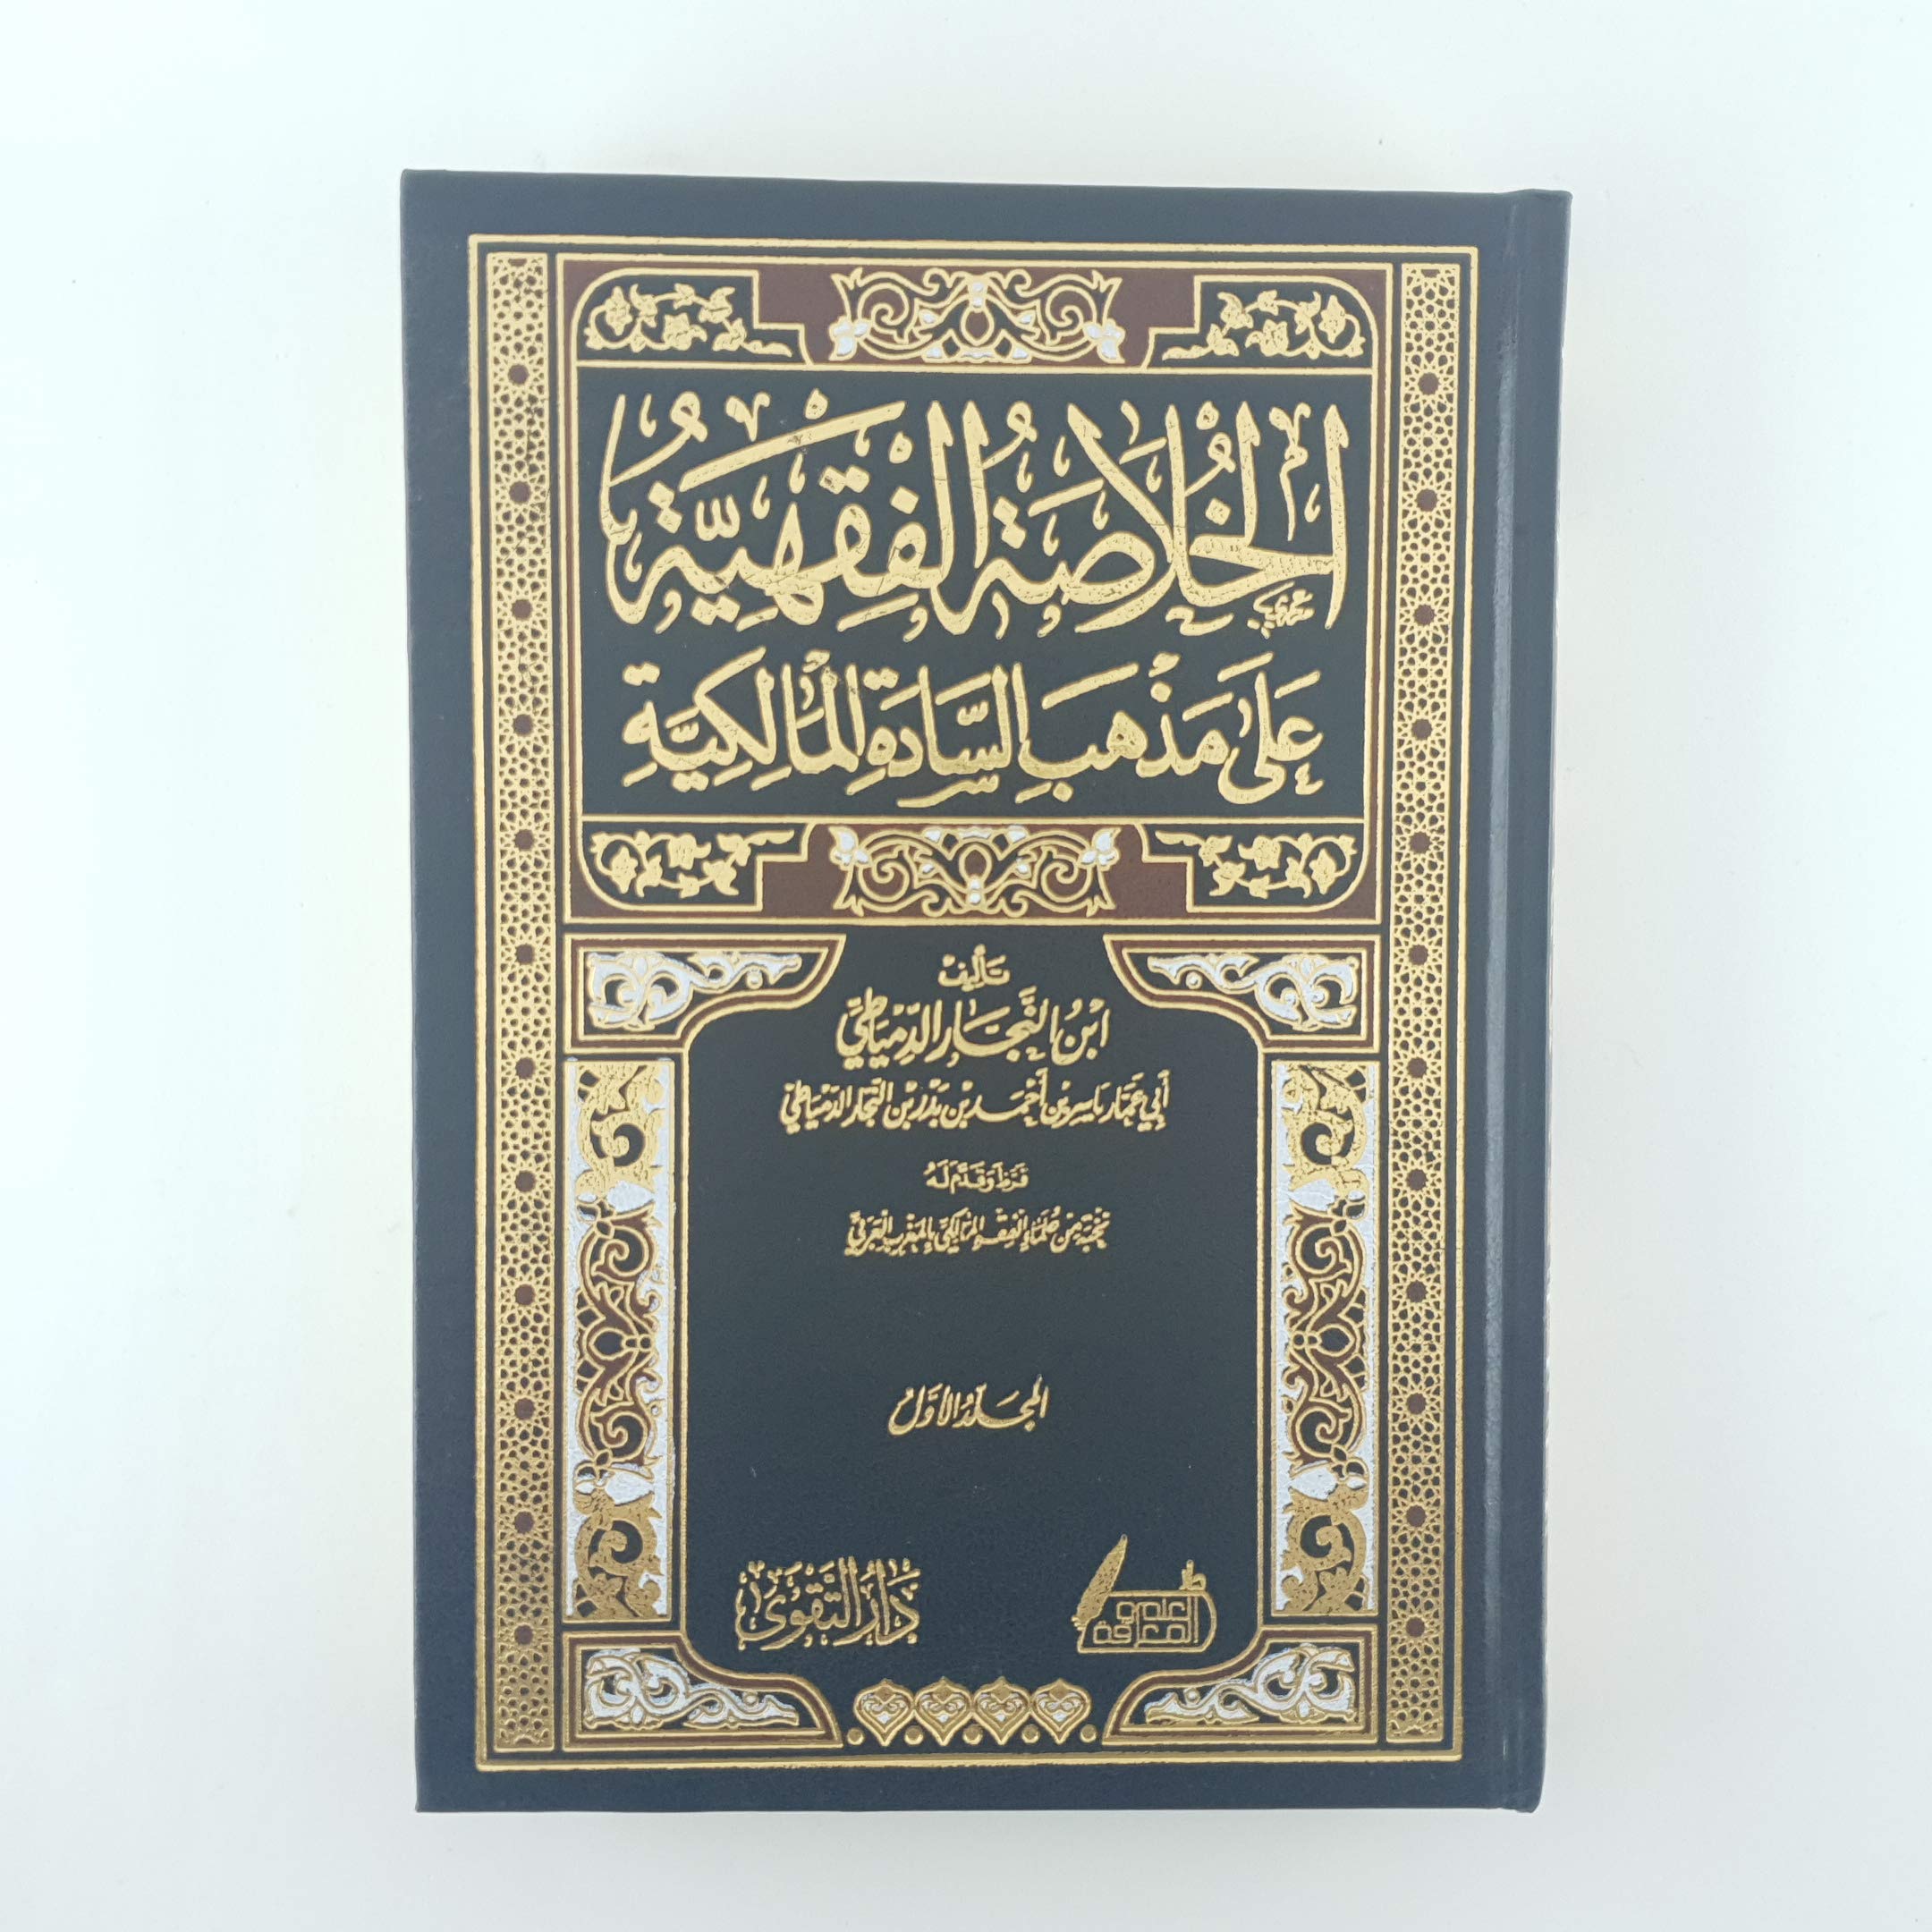 الْخُلَاصَةُ الْفِقْهِيَّةُ
عَلَى مَذْهَبِ السَّادَةِ الْمَالِكِيَّةِ
تَأْلِيفُ
ابْنُ النَّجَّارِ الدِّمْيَاطِيُّ
أَبِي عَمَّارٍ يَاسِرِ بْنِ أَحْمَدَ بْنِ بَدْرِ بْنِ النَّجَّارِ الدِّمْيَاطِيِّ
قَرَّظَ وَقَدَّمَ لَهُ
نُخْبَةٌ مِنْ عُلَمَاءِ الْفِقْهِ الْمَالِكِيِّ بِالْمَغْرِبِ الْعَرَبِيِّ
الْمُجَلَّدُ الْأَوَّلُ
علم و
المعرفة
دَارُ التَّقْوَى